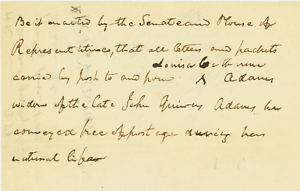 Be it enacted by the Senate and House of
Representatives that all letters and packets
Louisa Catherine
carried by post to and from ^ Adams
widow of the late John Quincy Adams be
conveyed free of postage during her
natural life